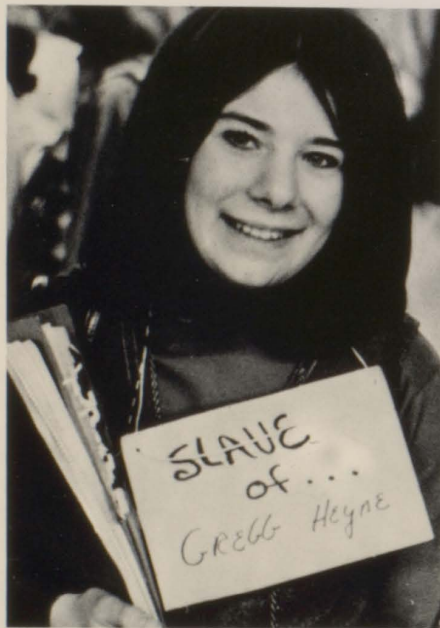 SLAVE
of...
GREGG HEYNE